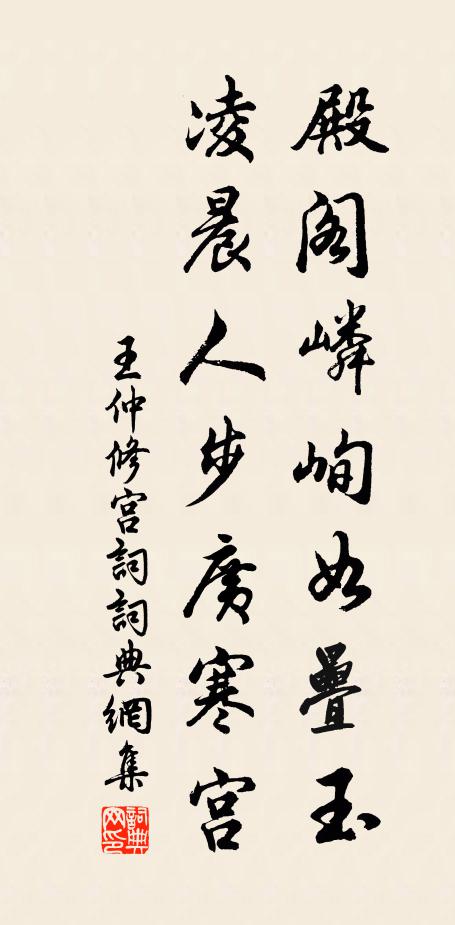 殿阁嶙峋如疊玉
凌晨人步廣寒宮
王仲修宮詞詞典網集
詞典网印